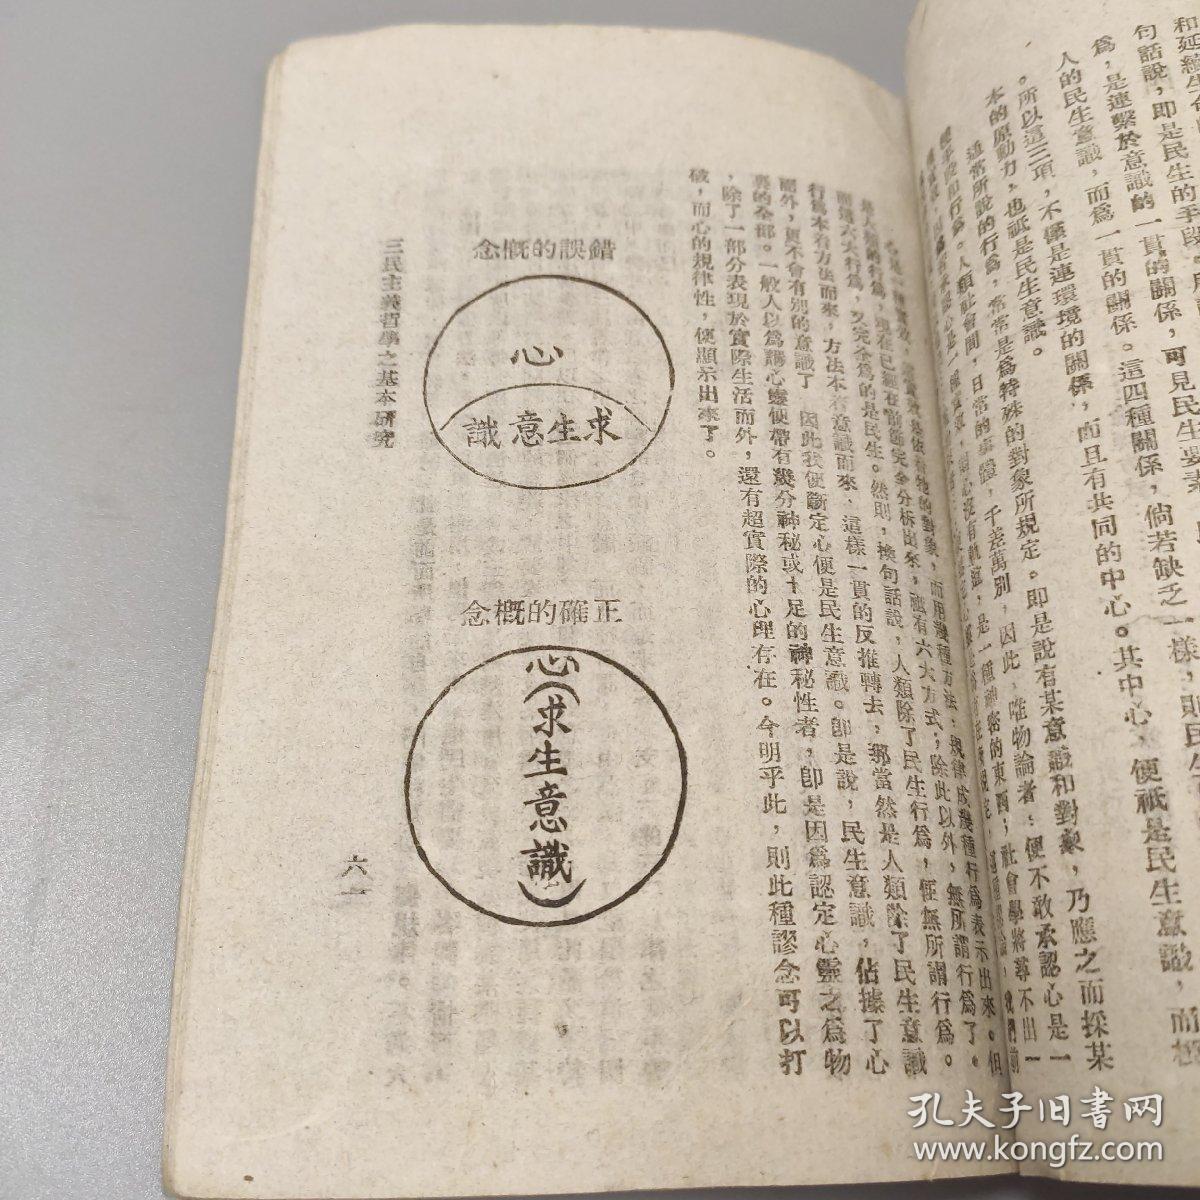 和延續生命
句話說，即是民生的手段
爲，是連繫於意識的一貫的關係，可見民生要素
人的民生意識，而爲一貫的關係。這四種關係，倘若缺乏一樣，則民生
。所以這三項，不僅是連環境的關係，而且有共同的中心。其中心，便祇是民生意識，而想
本的原動力，也祇是民生意識。
通常所說的行爲，常常是爲特殊的對象所規定。即是說有某意識和對象，乃應之而採某
行爲。人類社會間，日常的事體，千差萬別，因此，唯物論者，便不敢承認心是一
是一種神秘的東西；社會學將尋不出一
是人類的行爲，現在已經在前節完全分析出來，祇有六大方式；除此以外，無所謂行爲了。
而這六大行爲，又完全爲的是民生。然則，換句話說，人類除了民生行爲，便無所謂行爲。
行爲本有方法而來，方法本有意識而來，這樣一貫的反推轉去，那當然是人類除了民生意識
而外，更不會有別的意識了 因此我便斷定心便是民生意識。即是說，民生意識，佔據了心
靈的全部。一般人以爲講心靈便帶有幾分神秘或十足的神秘性者，即是因爲認定心靈之爲物
，除了一部分表現於實際生活而外，還有超實際的心理存在。今明乎此，則此種謬念可以打
破，而心的規律性，便顯示出來了。
錯誤的概念
心
求生意識
正確的概念
心（求生意識）
三民主義哲學之基本研究
六一
孔夫子旧书网
www.kongfz.com